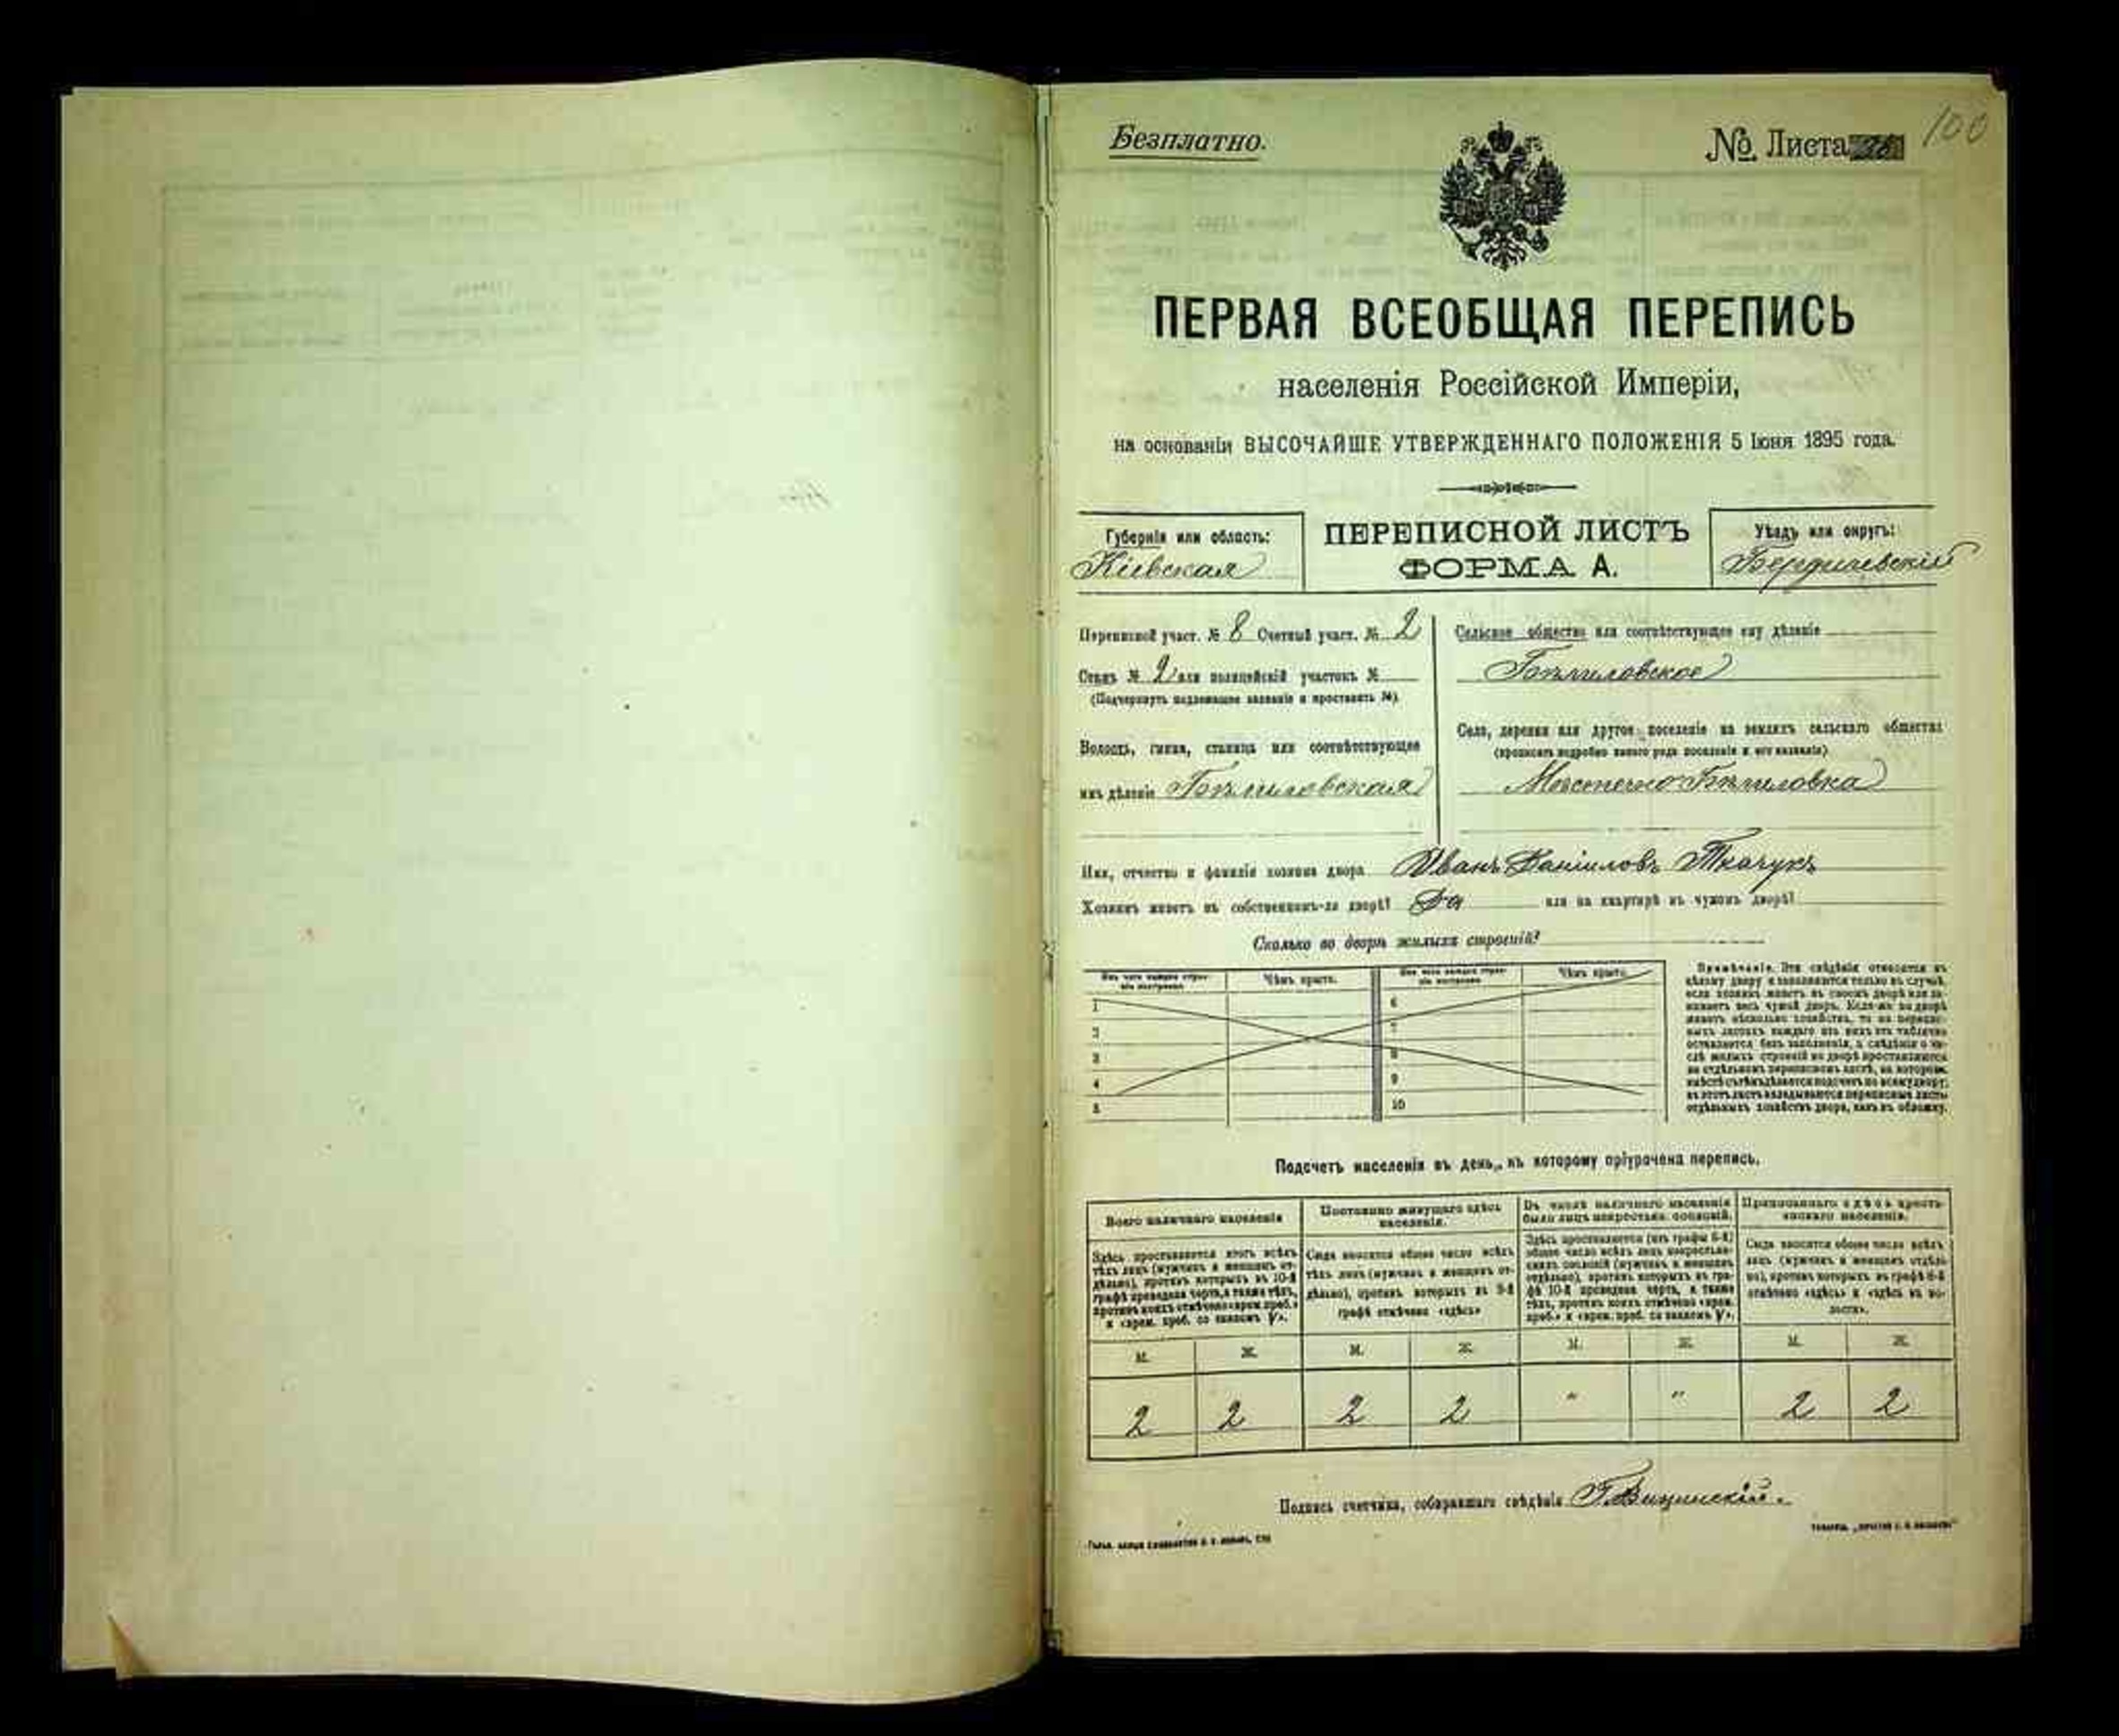 Безплатно.
№ Листа
100
ПЕРВАЯ ВСЕОБЩАЯ ПЕРЕПИСЬ
населенія Россійской Имперіи,
на основаніи ВЫСОЧАЙШЕ УТВЕРЖДЕННАГО ПОЛОЖЕНІЯ 5 Іюня 1895 года.
Губернія или область:
Кіевская
ПЕРЕПИСНОЙ ЛИСТЪ
ФОРМА А.
Уѣздъ или округъ:
Бердичевскій
Переписной участ. № 8 Счетный участ. № 2
Станъ № 2 или полицейскій участокъ №
(Подчеркнуть надлежащее названіе и проставить №)
Волость, гмина, станица или соотвѣтствующее
имъ дѣленіе Бѣлиловская
Сельское общество или соотвѣтствующее ему дѣленіе
Бѣлиловское
Село, деревня или другое поселеніе на земляхъ сельскаго общества
(прописать подробно какого рода поселеніе и его названіе)
Мѣстечко Бѣлиловка
Имя, отчество и фамилія хозяина двора Иванъ Даніиловъ Ткачукъ
Хозяинъ живетъ въ собственномъ-ли дворѣ? Да или на квартирѣ въ чужомъ дворѣ?
Сколько во дворѣ жилыхъ строеній?
Изъ чего каждое строеніе построено
Чѣмъ крыто.
Изъ чего каждое строеніе построено
Чѣмъ крыто.
1
2
3
4
5
6
7
8
9
10
Примѣчаніе. Эти свѣдѣнія относятся къ
цѣлому двору и заполняются только въ случаѣ,
если хозяинъ живетъ въ своемъ дворѣ или занимаетъ
весь чужой дворъ. Если-же во дворѣ
живетъ нѣсколько хозяйствъ, то на переписныхъ
листахъ каждаго изъ нихъ эта табличка
оставляется безъ заполненія, а свѣдѣнія о числѣ
жилыхъ строеній во дворѣ проставляются
на отдѣльномъ переписномъ листѣ, на которомъ
вмѣстѣ съ тѣмъ дѣлается подсчетъ по всему двору;
въ этотъ листъ вкладываются переписные листы
отдѣльныхъ хозяйствъ двора, какъ въ обложку.
Подсчетъ населенія въ день, къ которому пріурочена перепись.
Всего наличнаго населенія
Постоянно живущаго здѣсь
населенія.
Въ числѣ наличнаго населенія
было лицъ некрестьян. сословій.
Приписаннаго здѣсь крестьянскаго
населенія.
Здѣсь проставляется итогъ всѣхъ
тѣхъ лицъ (мужчинъ и женщинъ отдѣльно),
противъ которыхъ въ 10-й
графѣ проведена черта, а также тѣхъ,
противъ коихъ отмѣчено «врем. преб.»
и «врем. преб. со знакомъ V».
Сюда вносится общее число всѣхъ
тѣхъ лицъ (мужчинъ и женщинъ отдѣльно),
противъ которыхъ въ 9-й
графѣ отмѣчено «здѣсь»
Здѣсь проставляется (изъ графы 6-й)
общее число всѣхъ лицъ некрестьянскихъ
сословій (мужчинъ и женщинъ
отдѣльно), противъ которыхъ въ графѣ
10-й проведена черта, а также
тѣхъ, противъ коихъ отмѣчено «врем.
преб.» и «врем. преб. со знакомъ V».
Сюда вносится общее число всѣхъ
лицъ (мужчинъ и женщинъ отдѣльно),
противъ которыхъ въ графѣ 8-й
отмѣчено «здѣсь» и «здѣсь въ волости».
М. Ж. М. Ж. М. Ж. М. Ж.
2 2 2 2 " " 2 2
Подпись счетчика, собиравшаго свѣдѣнія